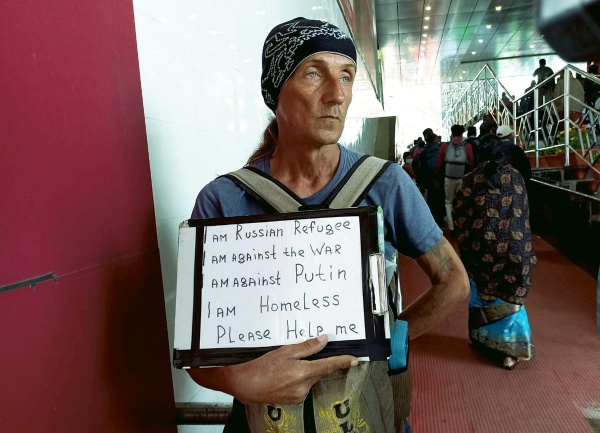 I AM RUSSIAN REFUGEE
I AM AGAINST the WAR
AM AGAINST PUTIN
I AM HOMELESS
PLEASE HELP me